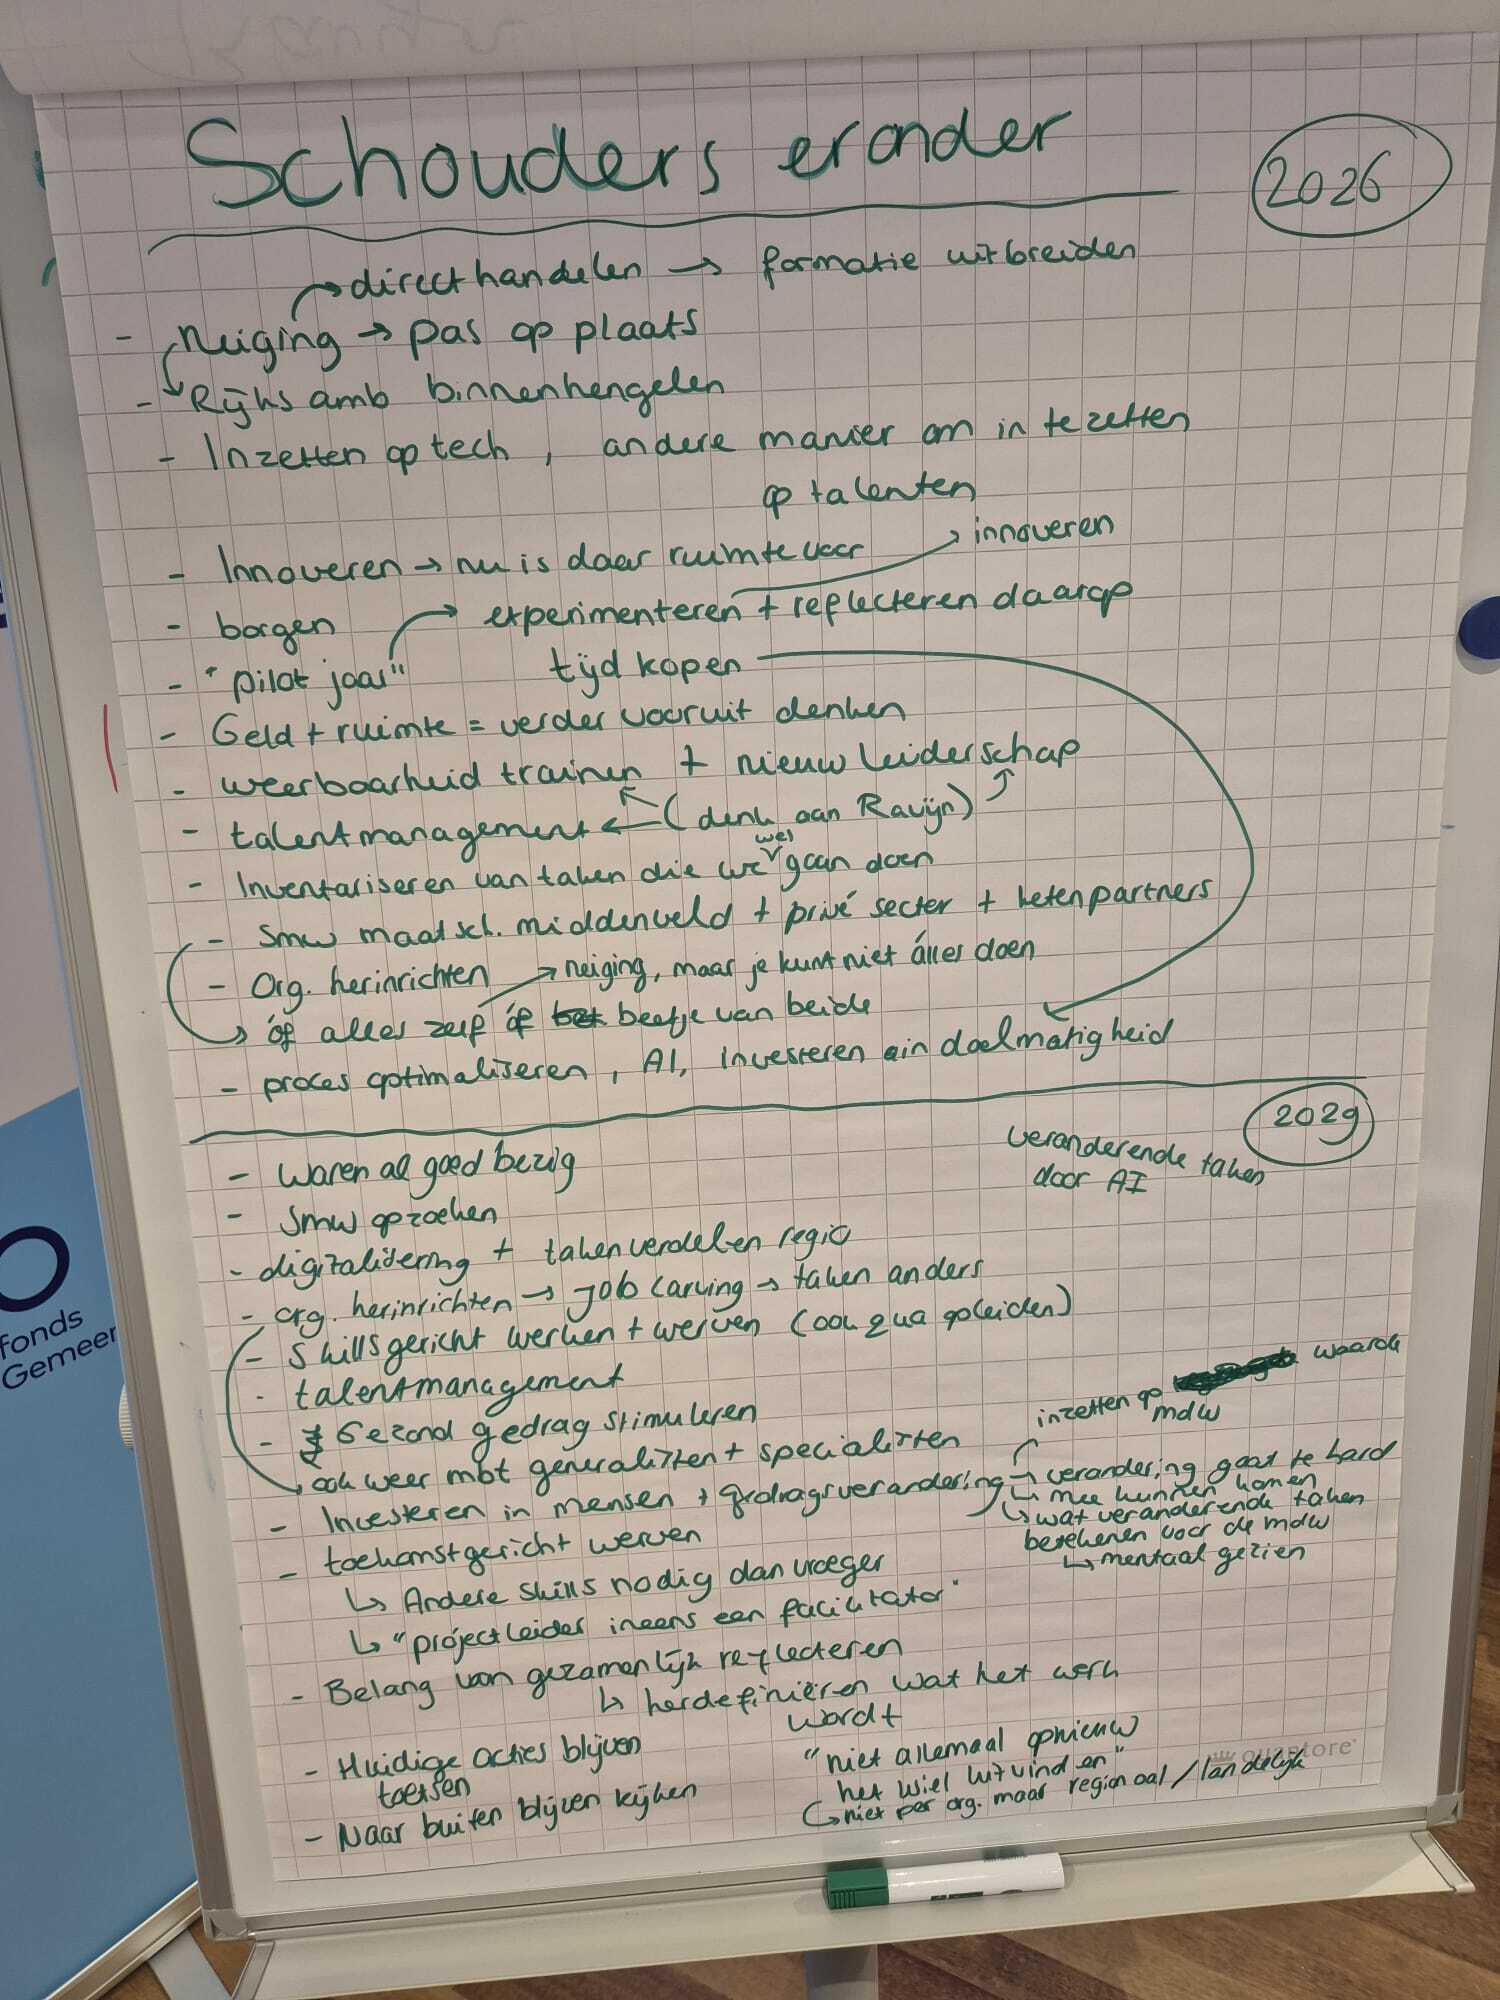 Schouders eronder
2026
direct handelen → formatie uitbreiden
- Neiging → pas op plaats
- Rijksamb binnenhengelen
- Inzetten op tech, andere manier om in te zetten
op talenten
- Innoveren → nu is daar ruimte voor
innoveren
- borgen
experimenteren + reflecteren daarop
- "pilot jaar"
tijd kopen
- Geld + ruimte = verder vooruit denken
- weerbaarheid trainen + nieuw leiderschap
- talentmanagement ← (denk aan Ravijn)
- Inventariseren van taken die we wel gaan doen
- Smw maatsch. middenveld + privé secter + ketenpartners
- Org. herinrichten
→ neiging, maar je kunt niet álles doen
→ óf alles zelf óf beetje van beide
- proces optimaliseren, AI, investeren in doelmatigheid
2029
veranderende taken
door AI
- Waren al goed bezig
- Smw opzoeken
- digitalisering + taken verdelen regio
- org. herinrichten → job carving → taken anders
- skillsgericht werken + werven (ook qua opleiden)
- talentmanagement
- Gezond gedrag stimuleren
→ ook weer mbt generalisten + specialisten
- Investeren in mensen + gedragsverandering
inzetten op waarde
mdw
→ verandering gaat te hard
↳ mee kunnen komen
↳ wat veranderende taken
betekenen voor de mdw
↳ mentaal gezien
- toekomstgericht werven
↳ Andere skills nodig dan vroeger
↳ "projectleider ineens een facilitator"
- Belang van gezamenlijk reflecteren
↳ herdefiniëren wat het werk
wordt
- Huidige acties blijven
toetsen
- Naar buiten blijven kijken
"niet allemaal opnieuw
het wiel uitvinden"
↳ niet per org. maar regionaal / landelijk
quantore
fonds
Gemeen